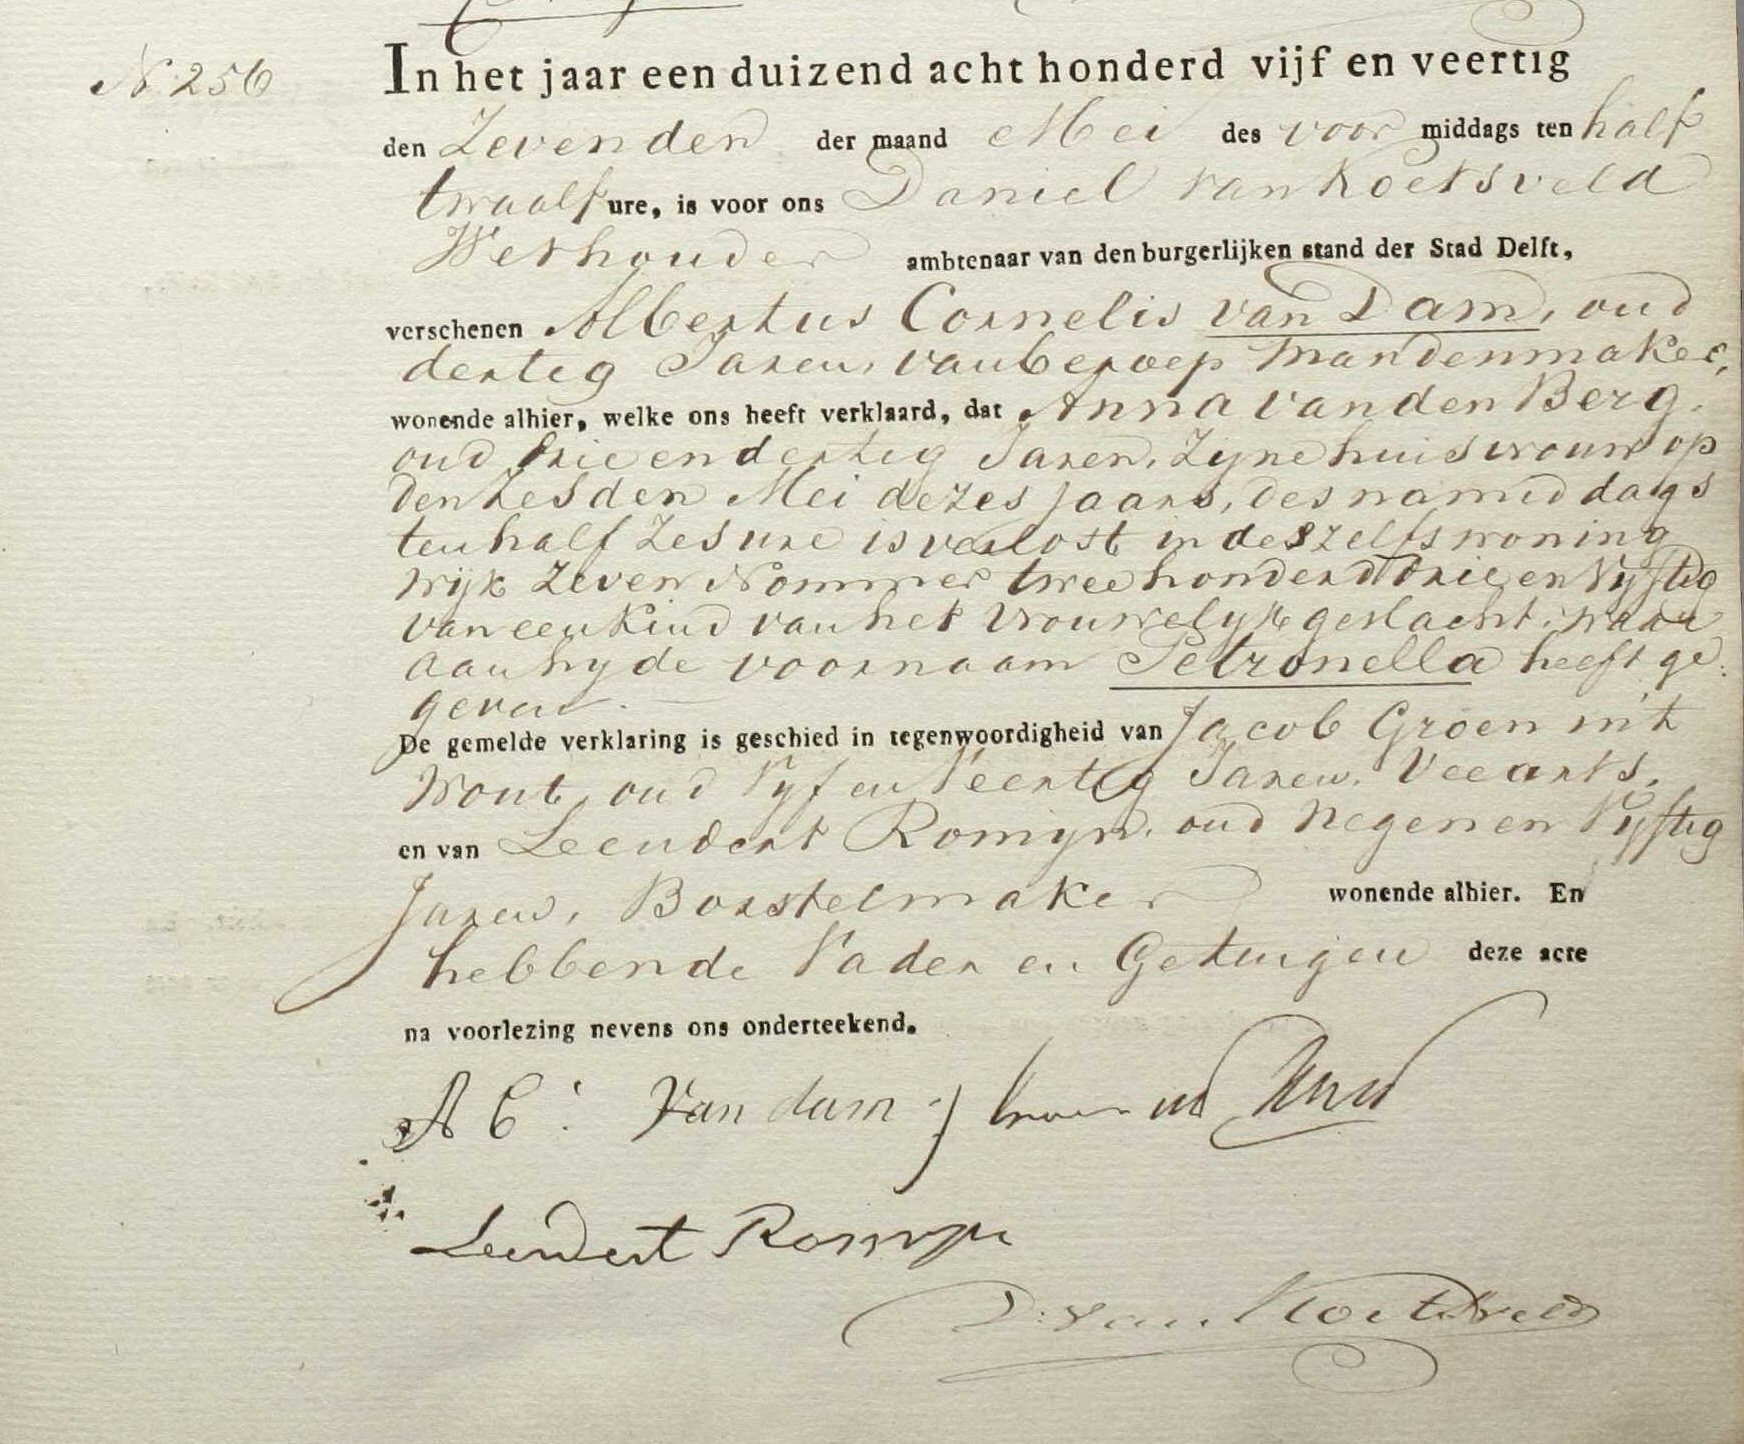 N. 256
In het jaar een duizend acht honderd vijf en veertig
den Zevenden der maand Mei des voor middags ten half
twaalf ure, is voor ons Daniel van Koetsveld
Wethouder ambtenaar van den burgerlijken stand der Stad Delft,
verschenen Albertus Cornelis van Dam, oud
dertig Jaren, van beroep Mandenmaker,
wonende alhier, welke ons heeft verklaard, dat Anna van den Berg,
oud drie en dertig Jaren, Zijne huisvrouw op
den Zesden Mei dezes jaars, des namiddags
ten half Zes ure is verlost in deszelfs woning
Wijk Zeven Nommer twee honderd drie en Vijftig
van een Kind van het Vrouwelijk geslacht, waar
aan hy de voornaam Petronella heeft ge:
geven.
De gemelde verklaring is geschied in tegenwoordigheid van Jacob Groen in't
Wout, oud Vijf en Veertig Jaren, Veearts,
en van Leendert Romijn, oud Negen en Vijftig
Jaren, Borstelmaker wonende alhier. En
hebbende Vader en Getuigen deze acte
na voorlezing nevens ons onderteekend.
A C: Van dam J Groen int Wout
Leendert Romijn
D: van Koetsveld